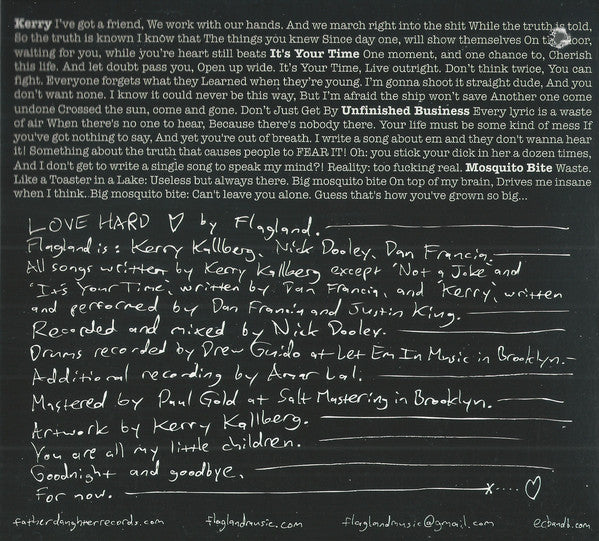 Kerry I've got a friend, We work with our hands. And we march right into the shit While the truth is told,
So the truth is known I know that The things you knew Since day one, will show themselves On the door,
waiting for you, while you're heart still beats It's Your Time One moment, and one chance to, Cherish
this life. And let doubt pass you, Open up wide. It's Your Time, Live outright. Don't think twice, You can
fight. Everyone forgets what they Learned when they're young. I'm gonna shoot it straight dude, And you
don't want none. I know it could never be this way, But I'm afraid the ship won't save Another one come
undone Crossed the sun, come and gone. Don't Just Get By Unfinished Business Every lyric is a waste
of air When there's no one to hear, Because there's nobody there. Your life must be some kind of mess If
you've got nothing to say, And yet you're out of breath. I write a song about em and they don't wanna hear
it! Something about the truth that causes people to FEAR IT! Oh: you stick your dick in her a dozen times,
And I don't get to write a single song to speak my mind?! Reality: too fucking real. Mosquito Bite Waste.
Like a Toaster in a Lake: Useless but always there. Big mosquito bite On top of my brain, Drives me insane
when I think. Big mosquito bite: Can't leave you alone. Guess that's how you've grown so big...
LOVE HARD ♡ by Flagland.
Flagland is: Kerry Kallberg, Nick Dooley, Dan Francia.
All songs written by Kerry Kallberg except 'Not a Joke' and
'It's Your Time', written by Dan Francia, and 'Kerry', written
and performed by Dan Francia and Justin King.
Recorded and mixed by Nick Dooley.
Drums recorded by Drew Guido at Let Em In Music in Brooklyn.
Additional recording by Amar Lal.
Mastered by Paul Gold at Salt Mastering in Brooklyn.
Artwork by Kerry Kallberg.
You are all my little children.
Goodnight and goodbye.
For now. x....♡
fatherdaughterrecords.com flaglandmusic.com flaglandmusic@gmail.com ecbandb.com